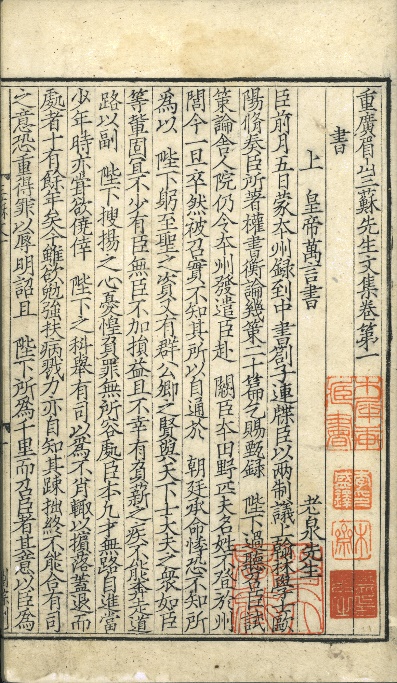 重廣眉山三蘇先生文集卷第一
書
上 皇帝萬言書 老泉先生
臣前月五日蒙本州録到中書劄子連牒臣以兩制議上翰林學士歐
陽脩奏臣所著權書衡論幾策二十篇乞賜甄録 陛下過聽召臣試
策論舍人院仍令本州發遣臣赴 闕臣本田野匹夫名姓不登於州
閭今一旦卒然被召實不知其所以自通於 朝廷承命悸恐不知所
爲以 陛下躬至聖之資又有群公卿之賢與天下士大夫之衆如臣
等輩固宜不少有臣無臣不加損益臣不幸有負薪之疾不能奔走道
路以副 陛下搜揚之心憂惶負罪無所容處臣本凡才無路自進當
少年時亦甞欲僥倖 陛下之科舉有司以爲不肖輒以擯落蓋退而
處者十有餘年矣今雖欲勉強扶病戮力亦自知其踈拙終不能合有司
之意恐重得罪以辱明詔且 陛下所爲千里而召臣者其意以臣爲